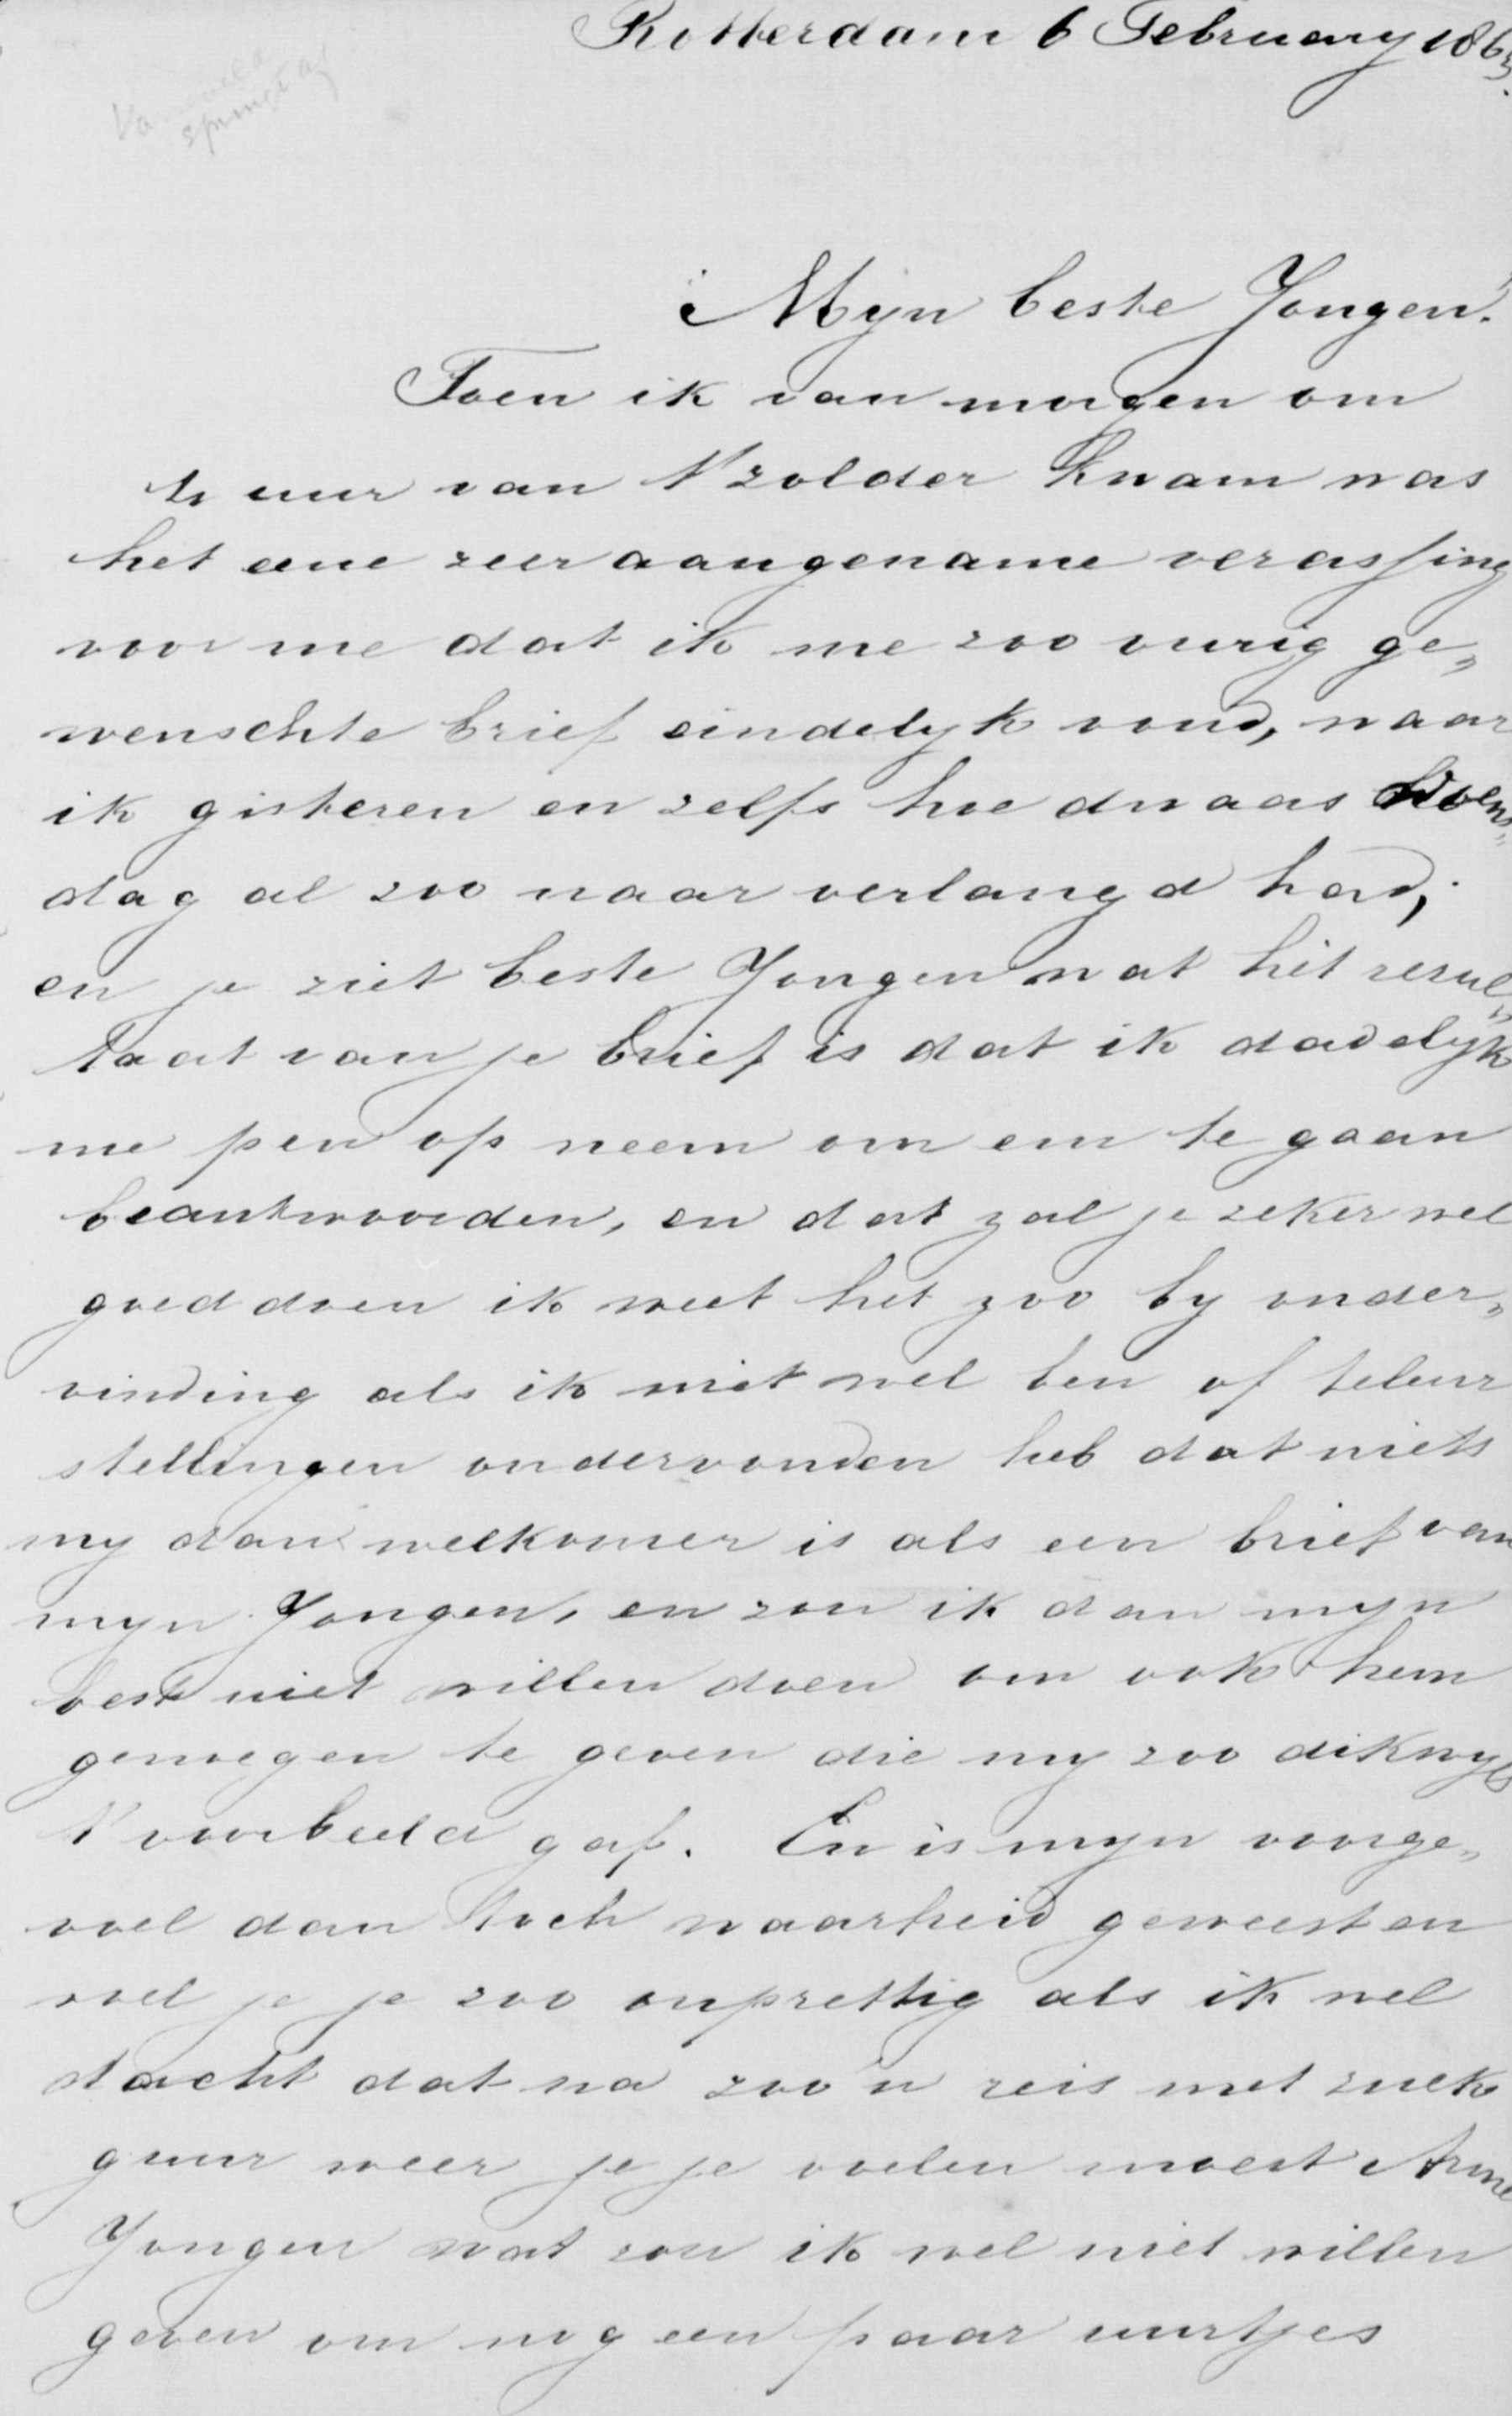 Rotterdam 6 February 1863.
Mijn beste Jongen!
Toen ik van morgen om
uur van t' zolder kwam was
het eene zeer aangename verassing
voor me dat ik me zoo vurig ge„
wenschte brief eindelyk vond, waar
ik gisteren en zelfs hoe dwaas Woens„
dag al zoo naar verlangd had,
en je ziet beste Jongen wat het resul„
taat van je brief is dat ik dadelyk
me pen op neem om em te gaan
beantwoorden, en dat zal je zeker wel
goed doen ik weet het zoo by onder„
vinding als ik niet wel ben of teleur
stellingen ondervonden heb dat niets
my dan welkomer is als een brief van
myn Jongen, en zou ik dan myn
best niet willen doen om ook hem
genoegen te geven die my zoo dikwyls
t' voorbeeld gaf. En is myn voorge„
voel dan toch waarheid geweest en
voel je je zoo onprettig als ik wel
dacht dat na zoo'n reis met zulk
guur weer je je voelen moest Arme
Jongen wat zou ik wel niet willen
geven om nog een paar uurtjes